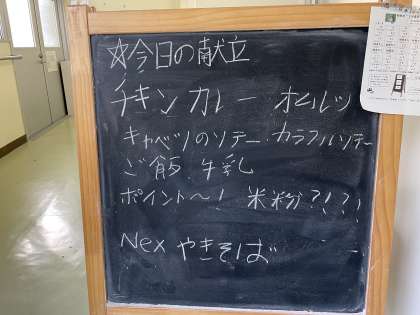 ☆今日の献立
チキンカレー オムレツ
キャベツのソテー、カラフルソテー
ご飯、牛乳
ポイント〜! 米粉?!?!
Nex やきそば